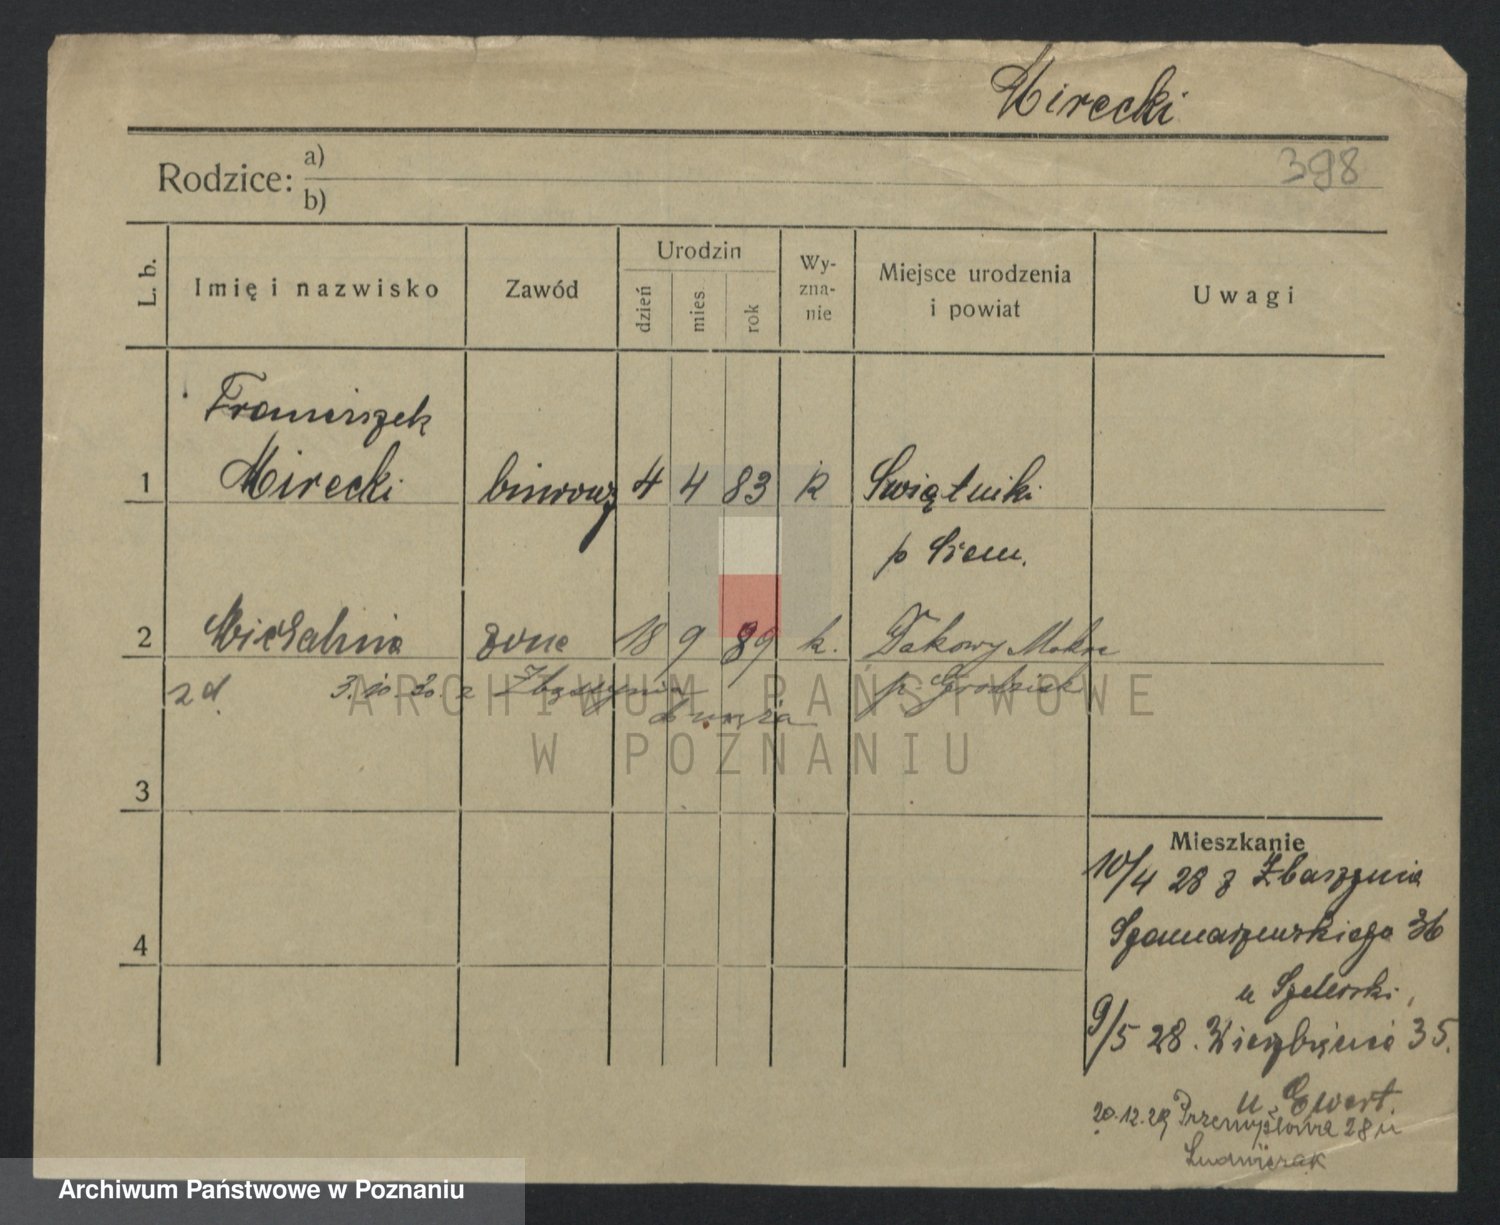 Mirecki
398
Rodzice: a)
b)
L. b.
Imię i nazwisko
Zawód
Urodzin
dzień
mies.
rok
Wy-
zna-
nie
Miejsce urodzenia
i powiat
Uwagi
Franciszek
1 Mirecki biurowy 4 4 83 k Swiątniki
p Srem.
2 Michalina żona 18 9 89 k. Dakowy Mokre
zd. 3.10.30 z Zbąszynia p. Grodzisk
do męża
3
4
Mieszkanie
10/4 28 z Zbaszynia
Szamarzewskiego 36
u
9/5 28. Wierzbięcice 35.
u Ewert.
20.12.29 Przemysłowa 28 u
Ludwiczak
ARCHIWUM PAŃSTWOWE
W POZNANIU
Archiwum Państwowe w Poznaniu